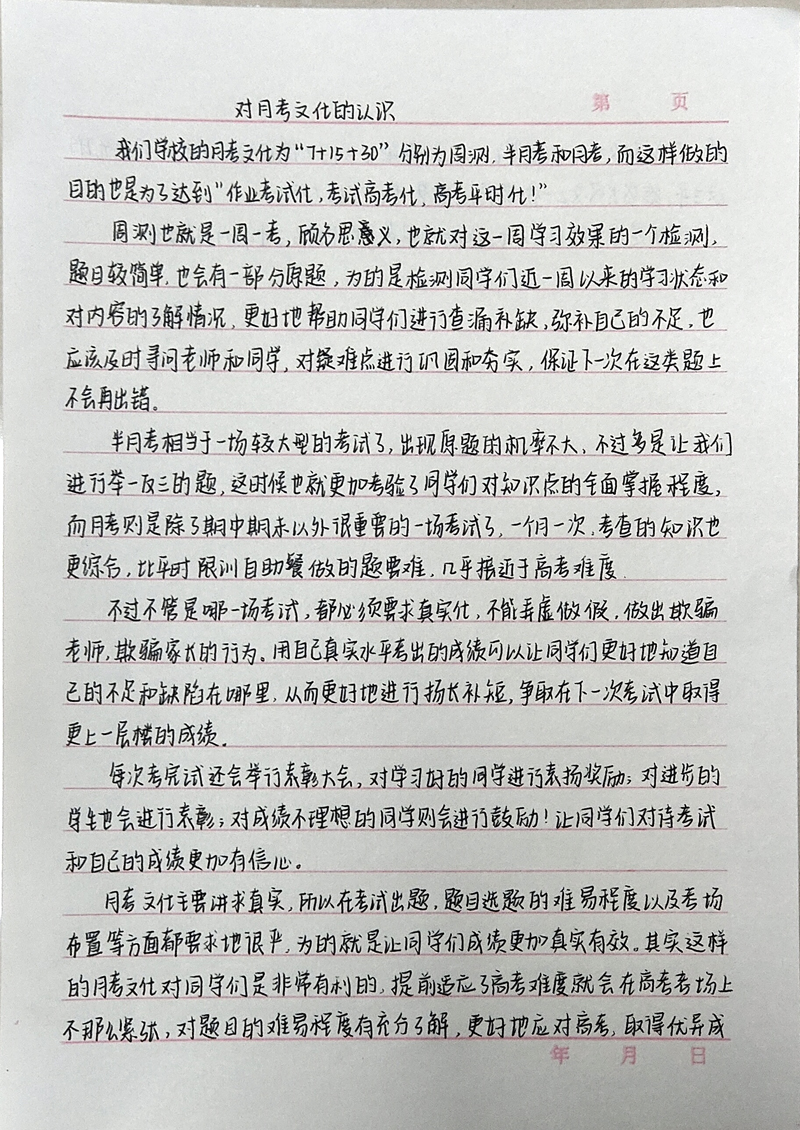 第 页
对月考文化的认识
我们学校的月考文化为“7+15+30”分别为周测,半月考和月考,而这样做的
目的也是为了达到“作业考试化,考试高考化,高考平时化!”
周测也就是一周一考,顾名思意义,也就对这一周学习效果的一个检测,
题目较简单,也会有一部分原题,为的是检测同学们近一周以来的学习状态和
对内容的了解情况,更好地帮助同学们进行查漏补缺,弥补自己的不足,也
应该及时寻问老师和同学,对疑难点进行巩固和夯实,保证下一次在这类题上
不会再出错。
半月考相当于一场较大型的考试了,出现原题的机率不大,不过多是让我们
进行举一反三的题,这时候也就更加考验了同学们对知识点的全面掌握程度,
而月考则是除了期中期末以外很重要的一场考试了,一个月一次,考查的知识也
更综合,比平时限训自助餐做的题要难,几乎接近于高考难度.
不过不管是哪一场考试,都必须要求真实化,不能弄虚做假,做出欺骗
老师,欺骗家长的行为。用自己真实水平考出的成绩可以让同学们更好地知道自
己的不足和缺陷在哪里,从而更好地进行扬长补短,争取在下一次考试中取得
更上一层楼的成绩。
每次考完试还会举行表彰大会,对学习好的同学进行表扬奖励;对进步的
学生也会进行表彰;对成绩不理想的同学则会进行鼓励!让同学们对待考试
和自己的成绩更加有信心。
月考文化主要讲求真实,所以在考试出题,题目选题的难易程度以及考场
布置等方面都要求地很严,为的就是让同学们成绩更加真实有效。其实这样
的月考文化对同学们是非常有利的,提前适应了高考难度就会在高考考场上
不那么紧张,对题目的难易程度有充分了解,更好地应对高考,取得优异成
年 月 日